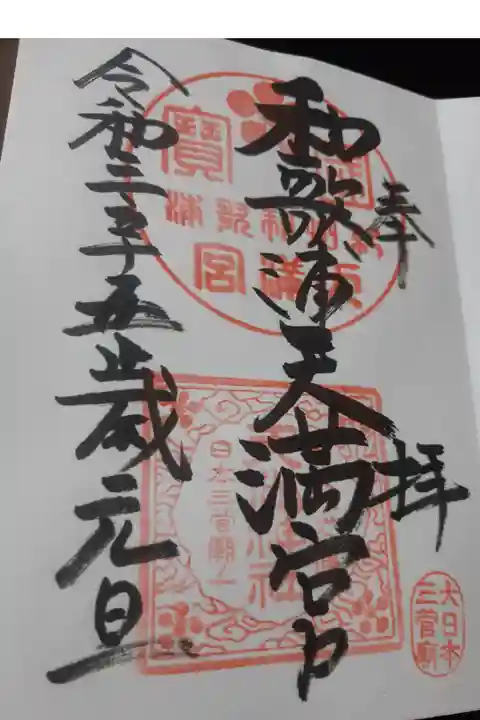 奉拝
和歌浦天満宮
令和三辛丑歳元旦
大日本
三菅廟
日本三菅廟一